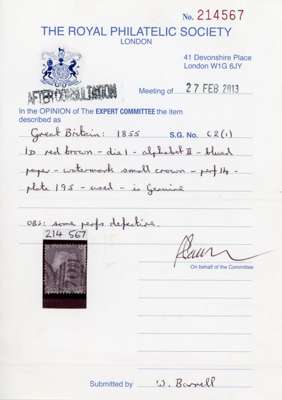 No. 214567
THE ROYAL PHILATELIC SOCIETY
LONDON
41 Devonshire Place
London W1G 6JY
AFTER CONSULTATION
Meeting of 27 FEB 2013
In the OPINION of The EXPERT COMMITTEE the item
described as
Great Britain: 1855 S.G. No. C2(1)
1D red brown - die 1 - alphabet II - blued
paper - watermark small crown - perf 14 -
plate 195 - used - is Genuine
OBS: some perfs defective.
214 567
On behalf of the Committee
Submitted by W. Barrell